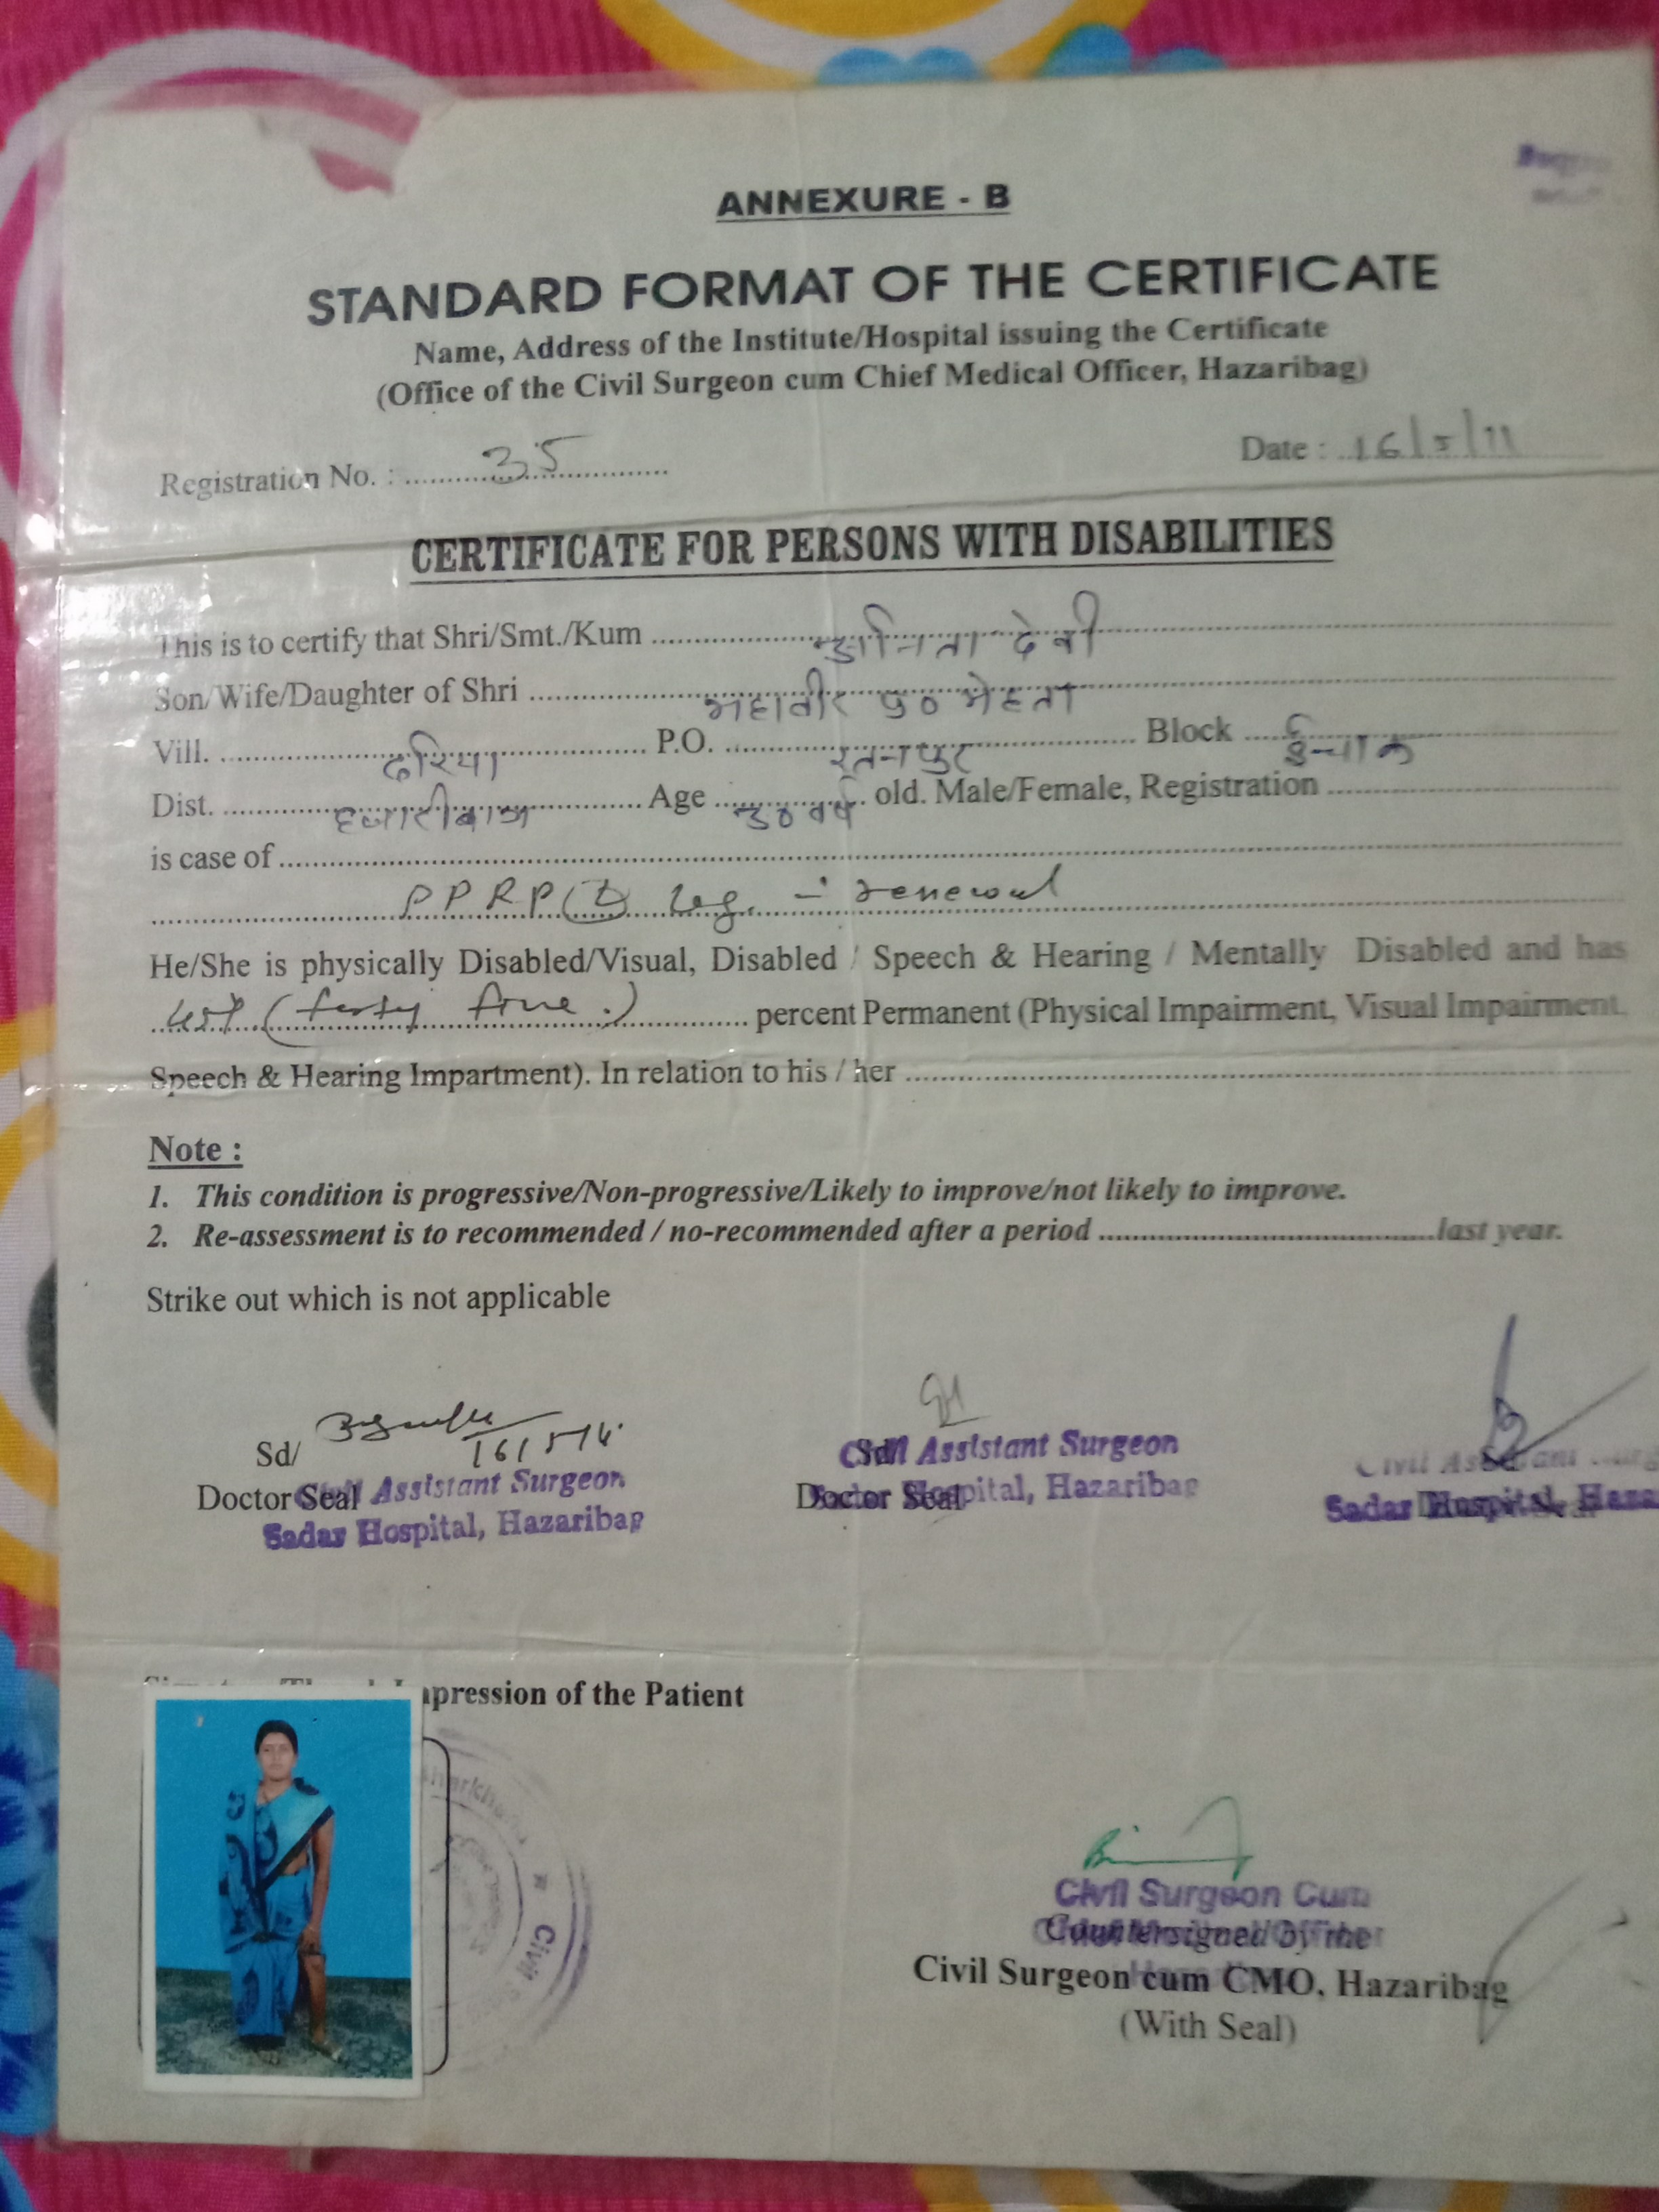 ANNEXURE - B
STANDARD FORMAT OF THE CERTIFICATE
Name, Address of the Institute/Hospital issuing the Certificate
(Office of the Civil Surgeon cum Chief Medical Officer, Hazaribag)
Registration No. : 35 Date : 16/5/11
CERTIFICATE FOR PERSONS WITH DISABILITIES
This is to certify that Shri/Smt./Kum अनिता देवी
Son/Wife/Daughter of Shri महावीर प्र० मेहता
Vill. दरिया P.O. रतनपुर Block ईचाक
Dist. हजारीबाग Age 30 वर्ष old. Male/Female, Registration
is case of
PPRP leg. - renewal
He/She is physically Disabled/Visual, Disabled / Speech & Hearing / Mentally Disabled and has
45% (forty five.) percent Permanent (Physical Impairment, Visual Impairment,
Speech & Hearing Impartment). In relation to his / her
Note :
1. This condition is progressive/Non-progressive/Likely to improve/not likely to improve.
2. Re-assessment is to recommended / no-recommended after a period last year.
Strike out which is not applicable
Sd/ Sd/
Civil Assistant Surgeon Civil Assistant Surgeon Civil Assistant
Doctor Seal Doctor Seal
Sadar Hospital, Hazaribag Sadar Hospital, Hazaribag Sadar Hospital, Haza
Impression of the Patient
Civil
Civil Surgeon Cum
Countersigned by the
Civil Surgeon cum CMO, Hazaribag
(With Seal)